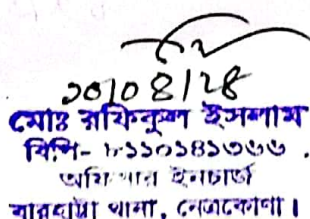 ২০/০৪/২৪
মোঃ রফিকুল ইসলাম
বিপি- ৮১১০১৪১৩৬৬
অফিসার ইনচার্জ
থানা, নেত্রকোণা।